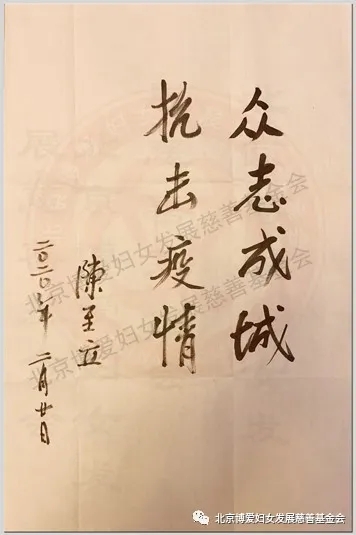 众志成城
抗击疫情
陳至立
二〇二〇年 二月廿日
北京博爱妇女发展慈善基金会
北京博爱妇女发展慈善基金会
北京博爱妇女发展慈善基金会